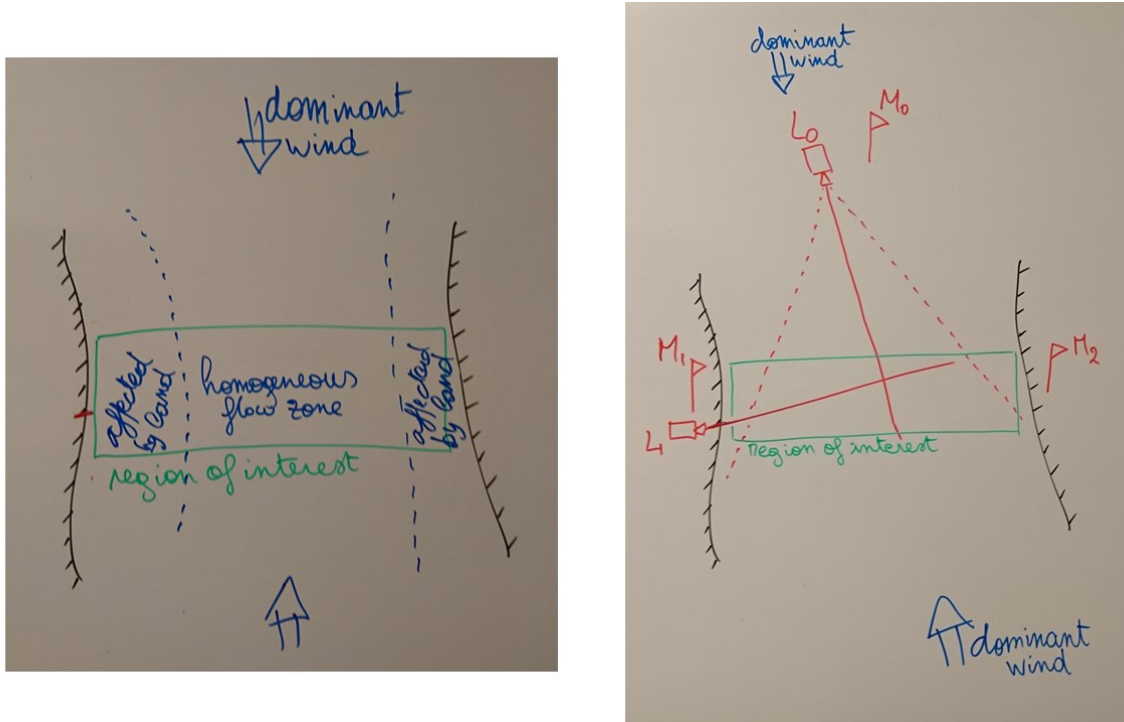 dominant
wind
affected
by land
homogeneous
flow zone
affected
by land
region of interest
dominant
wind
L0
M0
M1
M2
L1
region of interest
dominant
wind